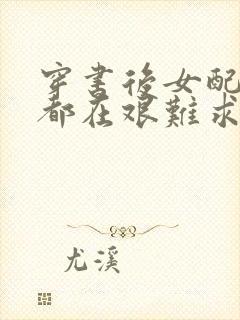 穿書後女配
都在艰難求
尤溪